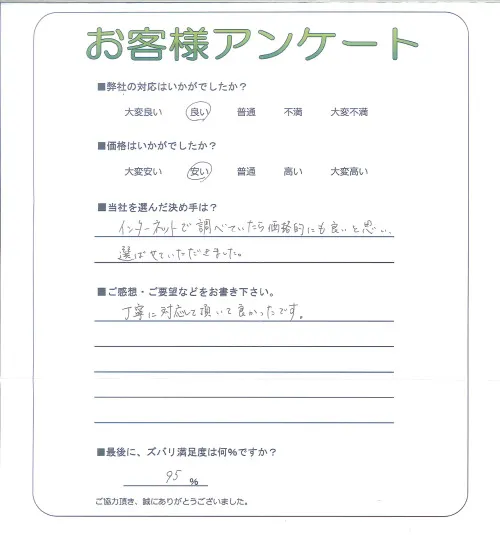 お客様アンケート
■弊社の対応はいかがでしたか?
大変良い 良い 普通 不満 大変不満
■価格はいかがでしたか?
大変安い 安い 普通 高い 大変高い
■当社を選んだ決め手は?
インターネットで調べていたら価格的にも良いと思い、
選ばせていただきました。
■ご感想・ご要望などをお書き下さい。
丁寧に対応して頂いて良かったです。
■最後に、ズバリ満足度は何%ですか?
95 %
ご協力頂き、誠にありがとうございました。